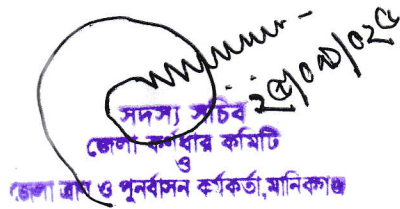 সদস্য সচিব
জেলা কর্ণধার কমিটি
ও
জেলা ত্রাণ ও পুনর্বাসন কর্মকর্তা,মানিকগঞ্জ